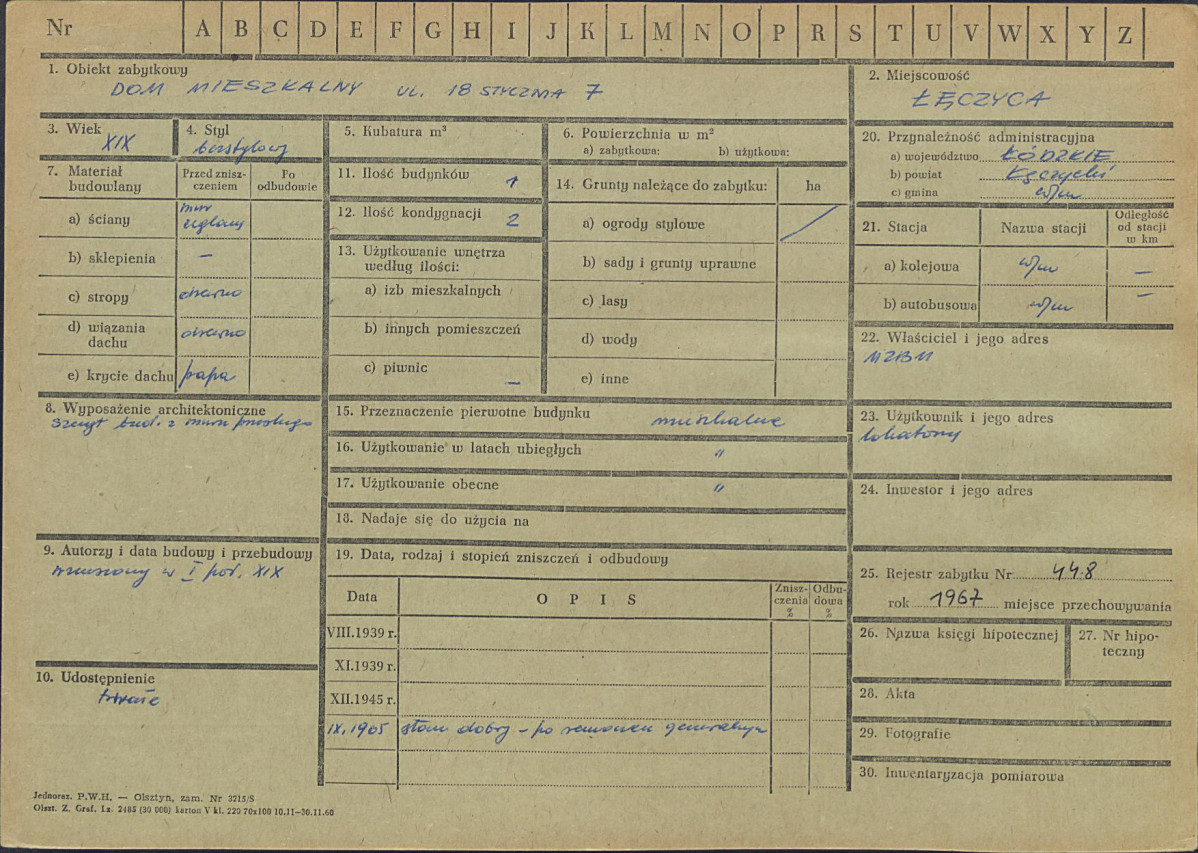 Nr A B C D E F G H I J K L M N O P R S T U V W X Y Z
1. Obiekt zabytkowy
DOM MIESZKALNY UL. 18 STYCZNIA 7
2. Miejscowość
ŁĘCZYCA
3. Wiek
XIX
4. Styl
bezstylowy
5. Kubatura m³
6. Powierzchnia w m²
a) zabytkowa: b) użytkowa:
7. Materiał budowlany
Przed znisz-
czeniem
Po
odbudowie
a) ściany
mur
ceglany
b) sklepienia –
c) stropy drewno
d) wiązania
dachu drewno
e) krycie dachu papa
8. Wyposażenie architektoniczne
Szczyt bud. z muru pruskiego
9. Autorzy i data budowy i przebudowy
wzniesiony w I poł. XIX
10. Udostępnienie
trwałe
11. Ilość budynków 1
12. Ilość kondygnacji 2
13. Użytkowanie wnętrza
według ilości:
a) izb mieszkalnych
b) innych pomieszczeń
c) piwnic –
14. Grunty należące do zabytku: ha
a) ogrody stylowe /
b) sady i grunty uprawne
c) lasy
d) wody
e) inne
15. Przeznaczenie pierwotne budynku mieszkalne
16. Użytkowanie w latach ubiegłych "
17. Użytkowanie obecne "
18. Nadaje się do użycia na
19. Data, rodzaj i stopień zniszczeń i odbudowy
Data
O P I S
Znisz-
czenia
%
Odbu-
dowa
%
VIII.1939 r.
XI.1939 r.
XII.1945 r.
IX.1965 stan dobry – po remoncie generalnym
20. Przynależność administracyjna
a) województwo ŁÓDZKIE
b) powiat Łęczycki
c) gmina w/m
21. Stacja
Nazwa stacji
Odległość
od stacji
w km
a) kolejowa w/m –
b) autobusowa w/m –
22. Właściciel i jego adres
MZBM
23. Użytkownik i jego adres
lokatorzy
24. Inwestor i jego adres
25. Rejestr zabytku Nr 448
rok 1967 miejsce przechowywania
26. Nazwa księgi hipotecznej
27. Nr hipo-
teczny
28. Akta
29. Fotografie
30. Inwentaryzacja pomiarowa
Jednoraz. P.W.H. — Olsztyn, zam. Nr 3215/S
Olszt. Z. Graf. Lz. 2485 (30 000) karton V kl. 220 70x100 10.11—30.11.60